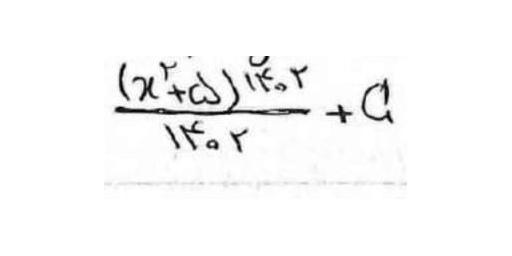 (x^۲+۵)^۱۴۰۲
۱۴۰۲ + C